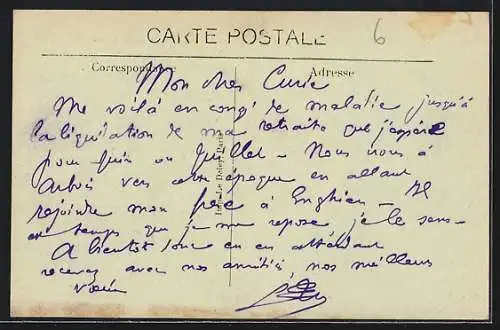 CARTE POSTALE
6
Correspondance
Adresse
Mon cher Curie
Me voilà en congé de maladie jusqu'à
la liquidation de ma retraite que j'espère
pour juin ou Juillet - Nous nous à
Arbois vers cette époque en allant
rejoindre mon père à Enghien - Il
est temps que je me repose, je le sens -
A bientôt donc et en attendant
recevez avec nos amitiés, nos meilleurs
vœux
Imp. Le Deley, Paris